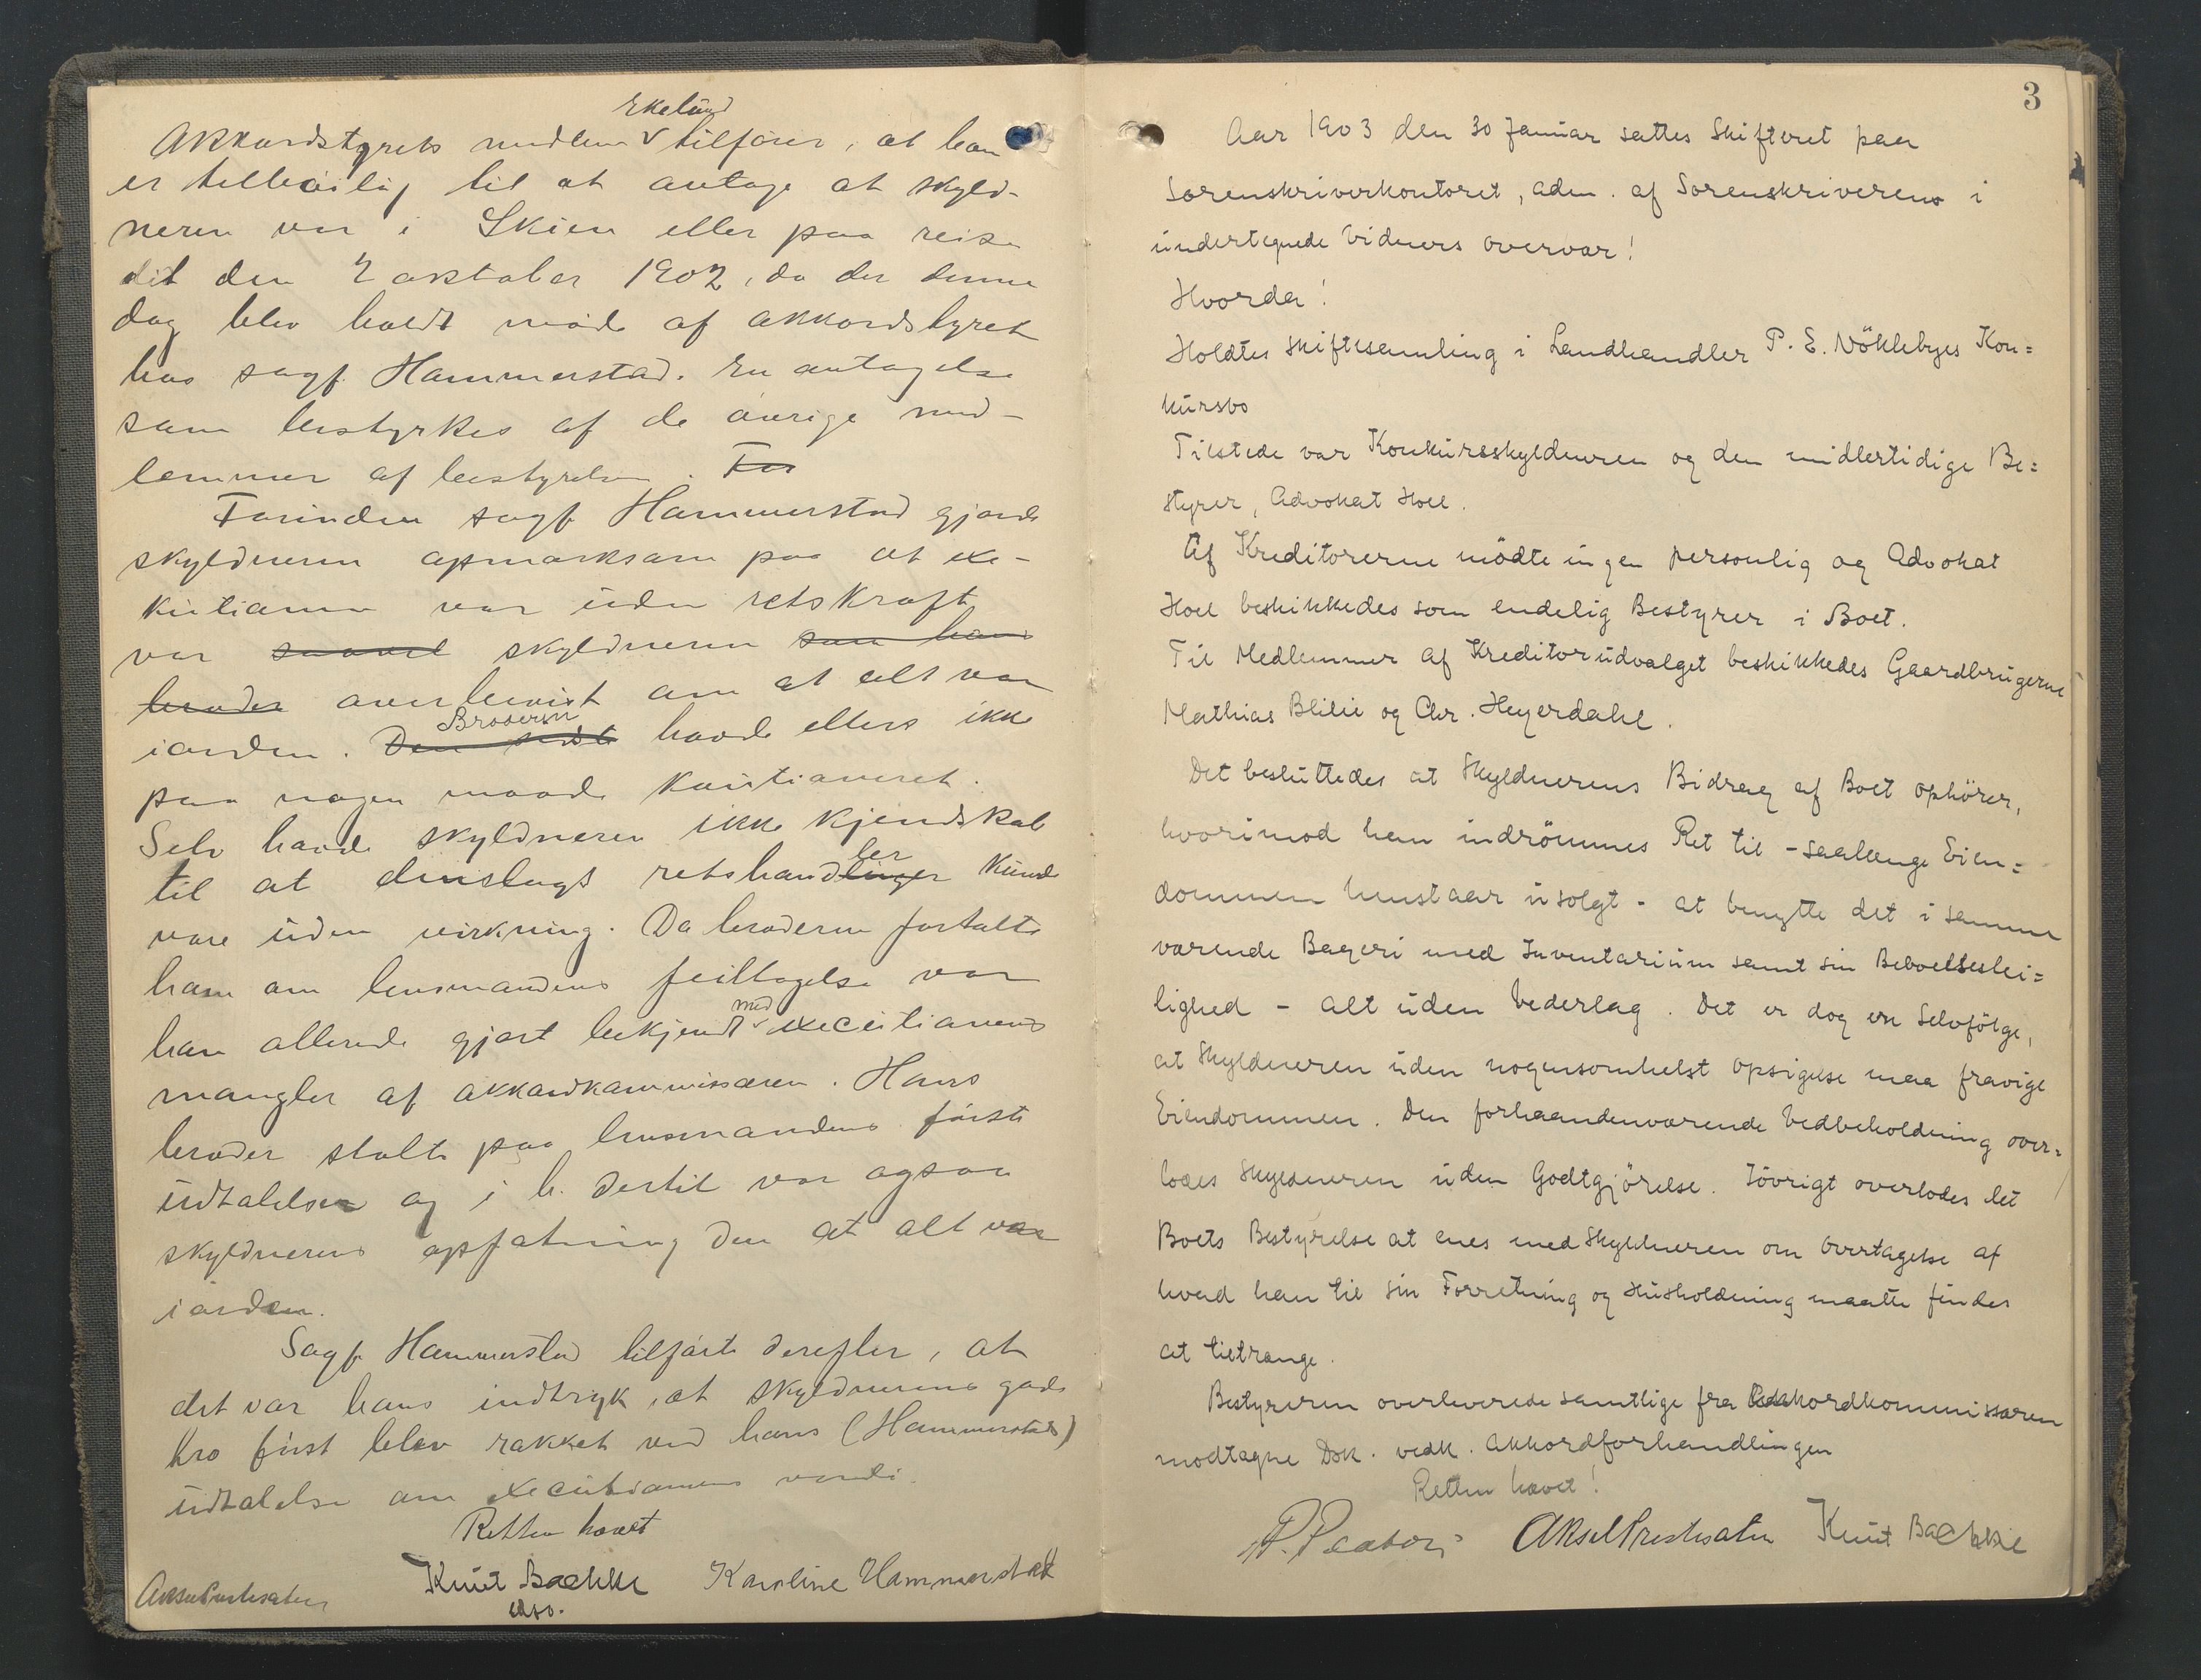 Ekelund
Akkordstyrets medlem v tilfører, at han
er tilbøilig til at antage at skyld-
neren var i Skien eller paa reise
dit den 2 oktober 1902, da der denne
dag blev holdt møde af akkordstyret
hos sagf. Hammerstad. En antagelse
som bestyrkes af de øvrige med-
lemmer af bestyrelsen. For
Forinden sagf Hammerstad gjorde
skyldneren opmærksom paa at exe-
kutionen var uden retskraft
var saavel skyldneren som hans
broder overbevist om at alt var
iorden. Den sidste Broderen havde ellers ikke
paa nogen maade kautioneret.
Selv havde skyldneren ikke kjendskab
til at denslags retshandlinger ler kunde
være uden virkning. Da broderen fortalte
ham om lensmandens feiltagelse var
han allerede gjort bekjendt med execution­ens
mangler af akkordkommissæren. Hans
broder stolte paa lensmandens første
udtalelser og i h. dertil var ogsaa
skyldnerens opfatning den at alt var
iorden.
Sagf Hammerstad tilførte derefter, at
det var hans indtryk, at skyldnerens gode
tro først blev rokket ved hans (Hammerstads)
udtalelse om executionens værdi.
Retten hævet
Aksel Prestesater Knut Baekke Karoline Hammerstad
3
Aar 1903 den 30 Januar sattes Skifteret paa
Sorenskriverkontoret, adm. af Sorenskriveren i
undertegnede Vidners overvær!
Hvorda!
Holdtes Skiftesamling i Landhandler P. E. Nöklebyes Kon=
kursbo
Tilstede var Konkursskyldneren og den midlertidige Be=
styrer, Advokat Hoel.
Af Kreditorerne mödte ingen personlig og Advokat
Hoel beskikkedes som endelig Bestyrer i Boet.
Til Medlemmer af Kreditorudvalget beskikkedes Gaardbrugerne
Mathias Blilie og Chr. Heyerdahl.
Det besluttedes at Skyldnerens Bidrag af Boet ophörer,
hvorimod han indrömmes Ret til - saalænge Eien=
dommen henstaar usolgt - at benytte det i samme
værende Bageri med Inventarium samt sin Beboelseslei=
lighed - alt uden Vederlag. Det er dog en Selvfölge,
at Skyldneren uden nogensomhelst Opsigelse maa fravige
Eiendommen. Den forhaandenværende Vedbeholdning over=
lodes Skyldneren uden Godtgjörelse. Iövrigt overlodes det
Boets Bestyrelse at enes med Skyldneren om Overtagelse af
hvad han til sin Forretning og Husholdning maatte findes
at tiltrænge.
Bestyreren overleverede samtlige fra Akkordkommissæren
modtagne Dok. vedk. Akkordforhandlingen
Retten hævet!
Aksel Prestesater Knut Baekke